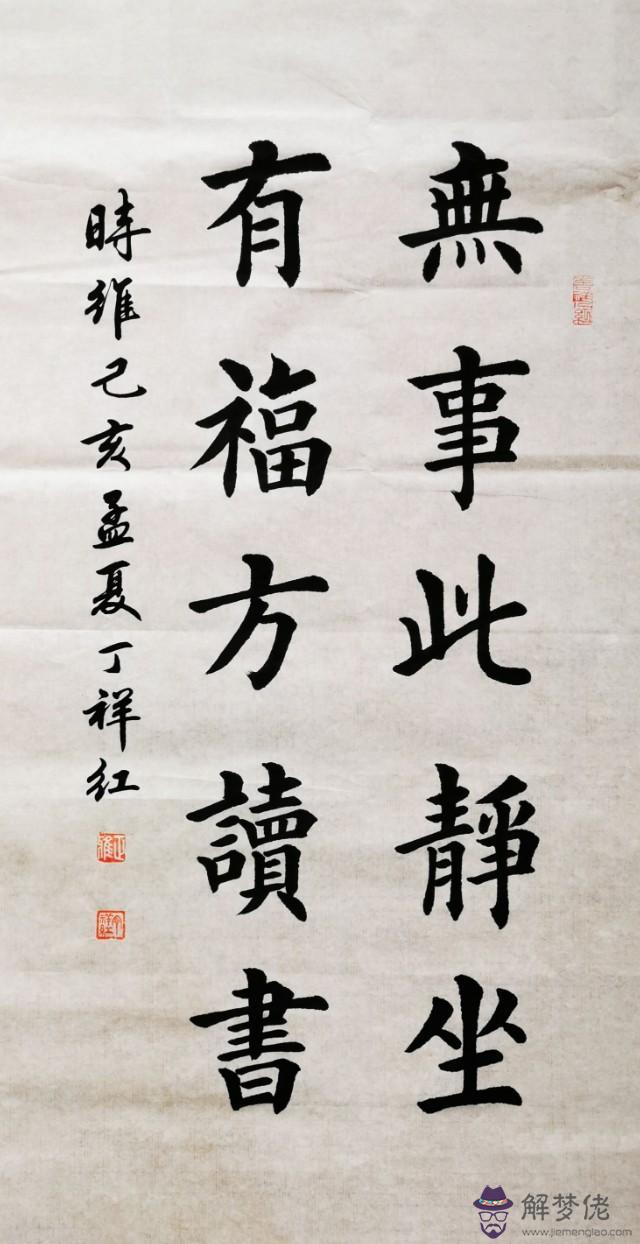 無事此靜坐
有福方讀書
時維己亥孟夏丁祥紅
解梦佬
www.jiemenglao.com